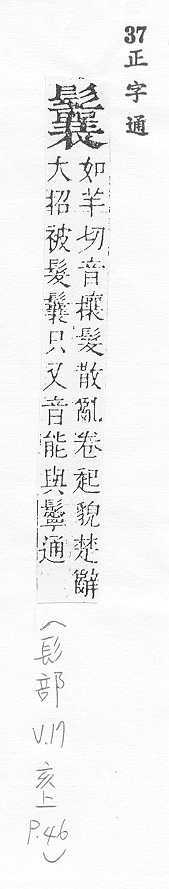 37
正字通
鬤
如羊切音攘髮散亂卷起貌楚辭
大招被髮鬤只又音能與鬡通
(髟部 V.17 亥上 P.46)